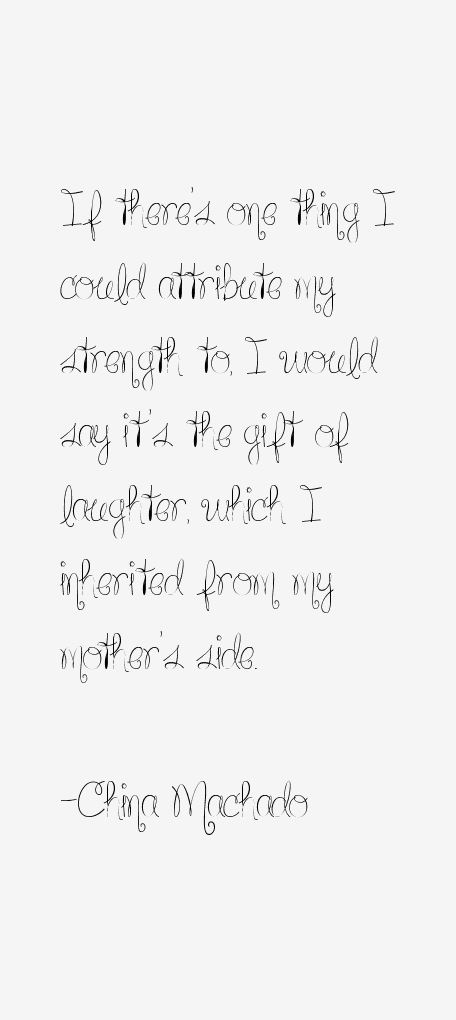 If there's one thing I
could attribute my
strength to, I would
say it's the gift of
laughter, which I
inherited from my
mother's side.
-China Machado